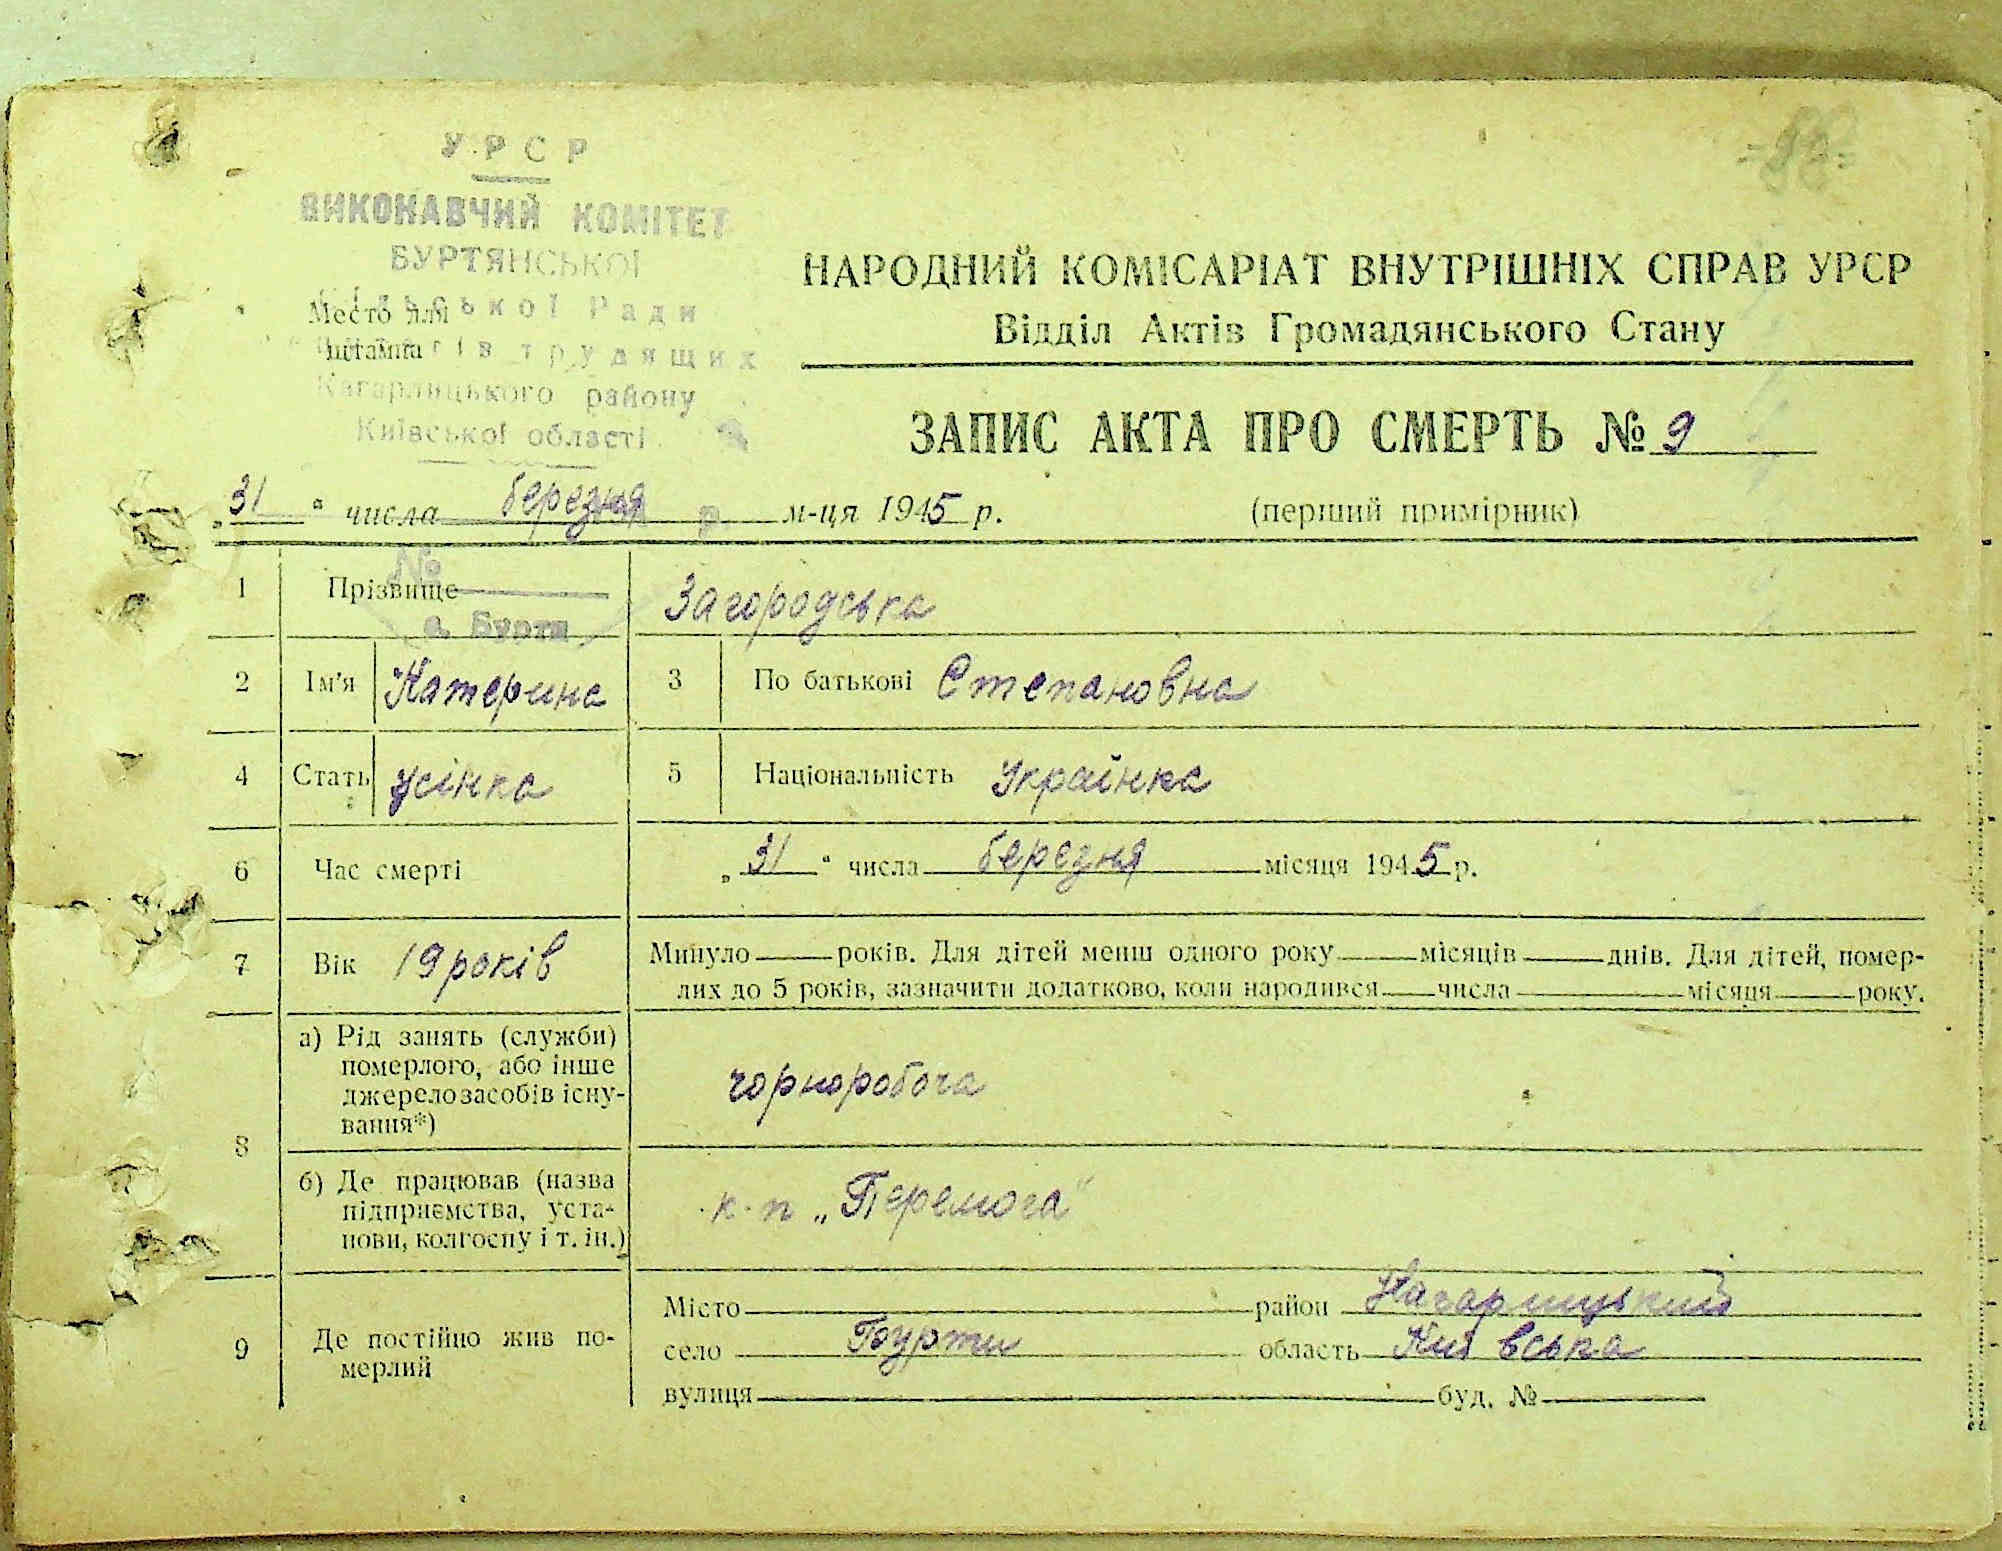 УРСР
ВИКОНАВЧИЙ КОМІТЕТ
БУРТЯНСЬКОЇ
сільської Ради
Место для
штампа
трудящих
Кагарлицького району
Київської області
НАРОДНИЙ КОМІСАРІАТ ВНУТРІШНІХ СПРАВ УРСР
Відділ Актів Громадянського Стану
ЗАПИС АКТА ПРО СМЕРТЬ № 9
„31“ числа березня м-ця 1945 р.
(перший примірник)
№
с. Бурти
1 Прізвище Загородська
2 Ім'я Катерина 3 По батькові Степановна
4 Стать жінка 5 Національність Українка
6 Час смерті „31“ числа березня місяця 1945 р.
7 Вік 19 років Минуло років. Для дітей менш одного року місяців днів. Для дітей, помер-
лих до 5 років, зазначити додатково, коли народився числа місяця року.
8
а) Рід занять (служби)
померлого, або інше
джерело засобів існу-
вання*)
чорноробоча
б) Де працював (назва
підприємства, уста-
нови, колгоспу і т. ін.)
к-п „Перемога“
9 Де постійно жив по-
мерлий
Місто район Кагарлицький
село Бурти область Київська
вулиця буд. №